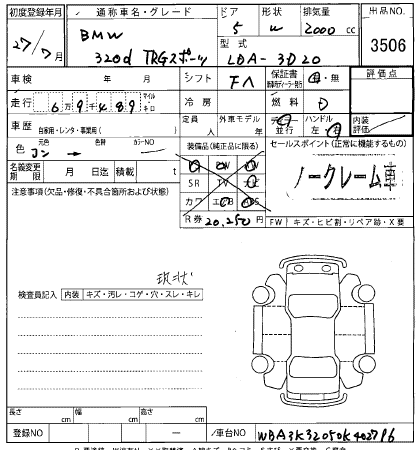 初度登録年月 通称車名・グレード ドア 形状 排気量 出品NO.
27/7月 BMW 320d TRGスポーツ 5 W 2000 cc 3506
型式 LDA-3D20
車検 年 月 シフト FA 保証書 有・無 評価点
走行 6万9千489 マイル キロ 冷房 燃料 D
定員 人 外車モデル 年 ディーラー 並行 ハンドル 左 右 内装評価
車歴 自家用・レンタ・事業用( )
色 元色 コン カラーNO
装備品(純正品に限る) セールスポイント(正常に機能するもの)
名義変更期限 月 日迄 積載 t
SR TV ナビ
カワ エアB ABS
ノークレーム車
R券 20,250円
注意事項(欠品・修復・不具合箇所および状態)
FW キズ・ヒビ割・リペア跡・X要
現状
検査員記入 内装 キズ・汚レ・コゲ・穴・スレ・キレ
長さ cm 幅 cm 高さ cm
登録NO 車台NO WBA3K32050K402796